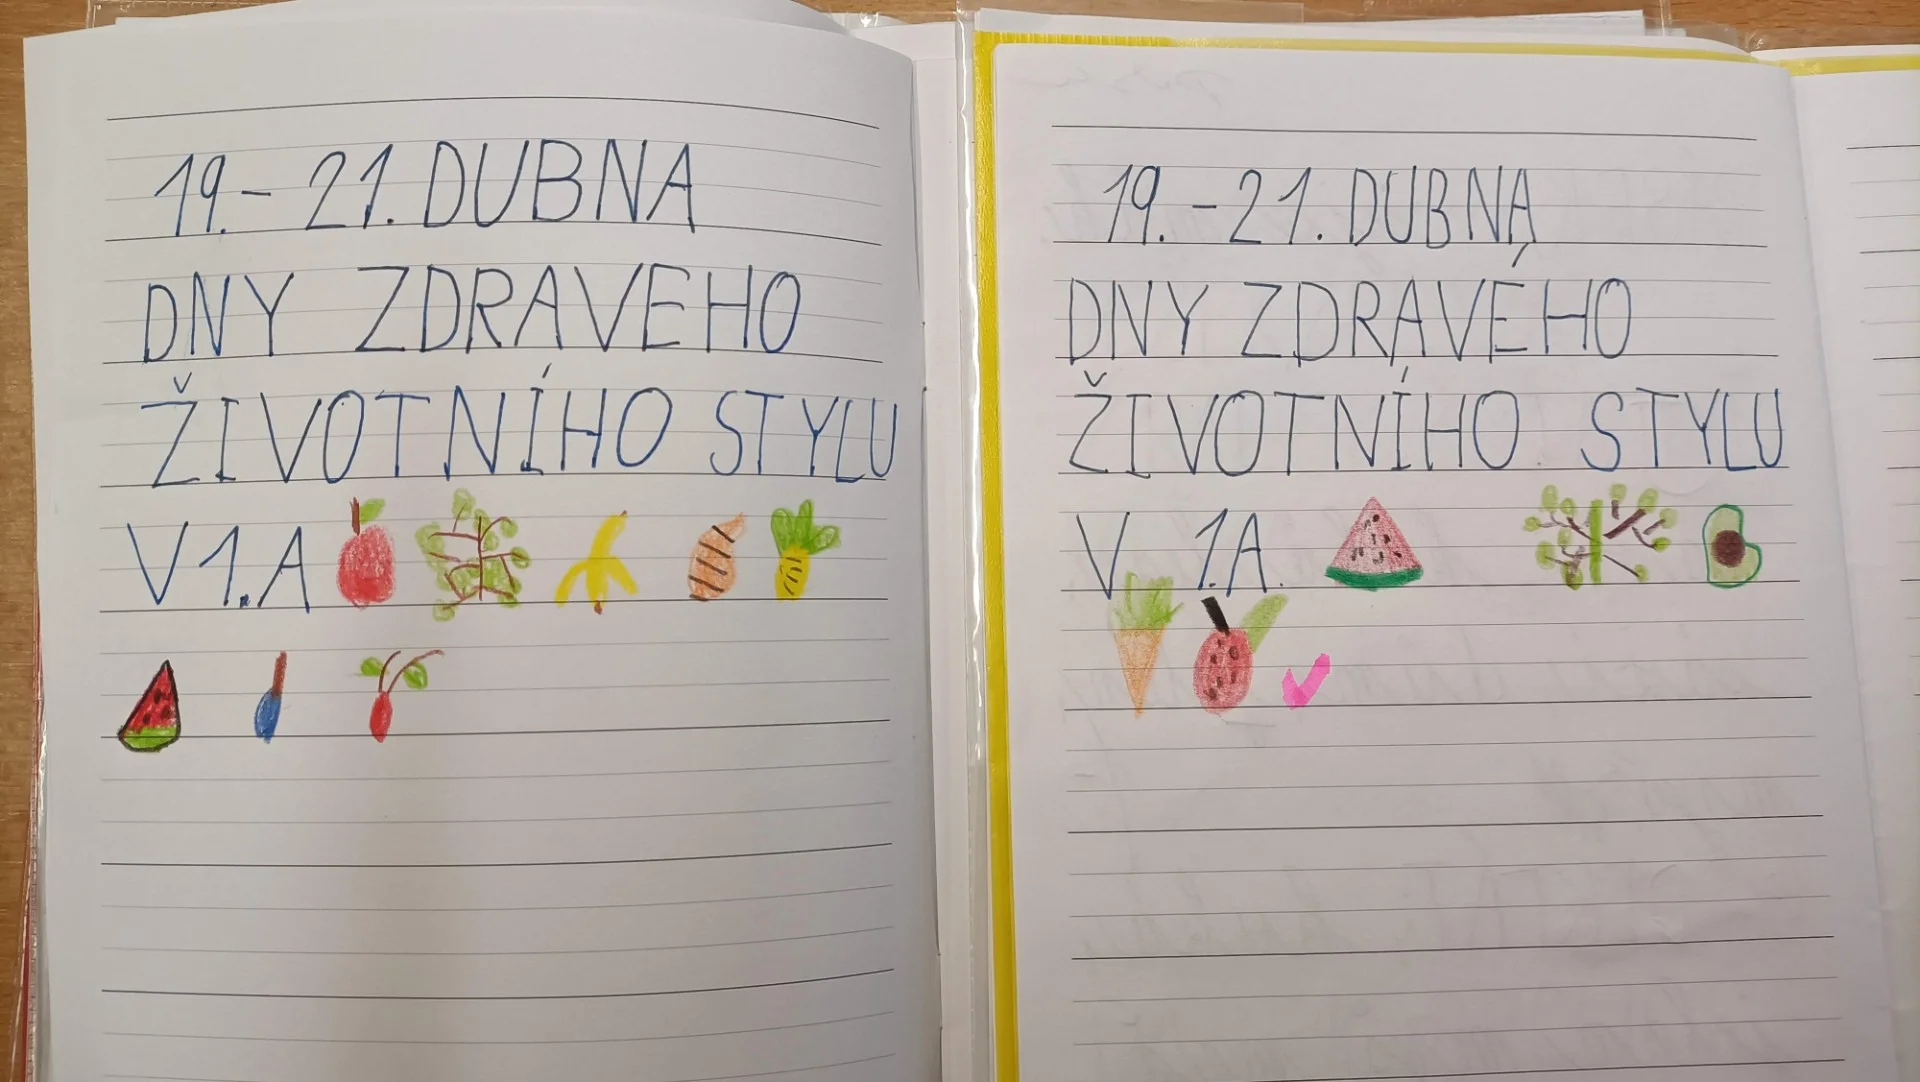 19.- 21. DUBNA
DNY ZDRAVEHO
ŽIVOTNÍHO STYLU
V 1. A
19. - 21. DUBNA
DNY ZDRAVÉHO
ŽIVOTNÍHO STYLU
V 1.A.